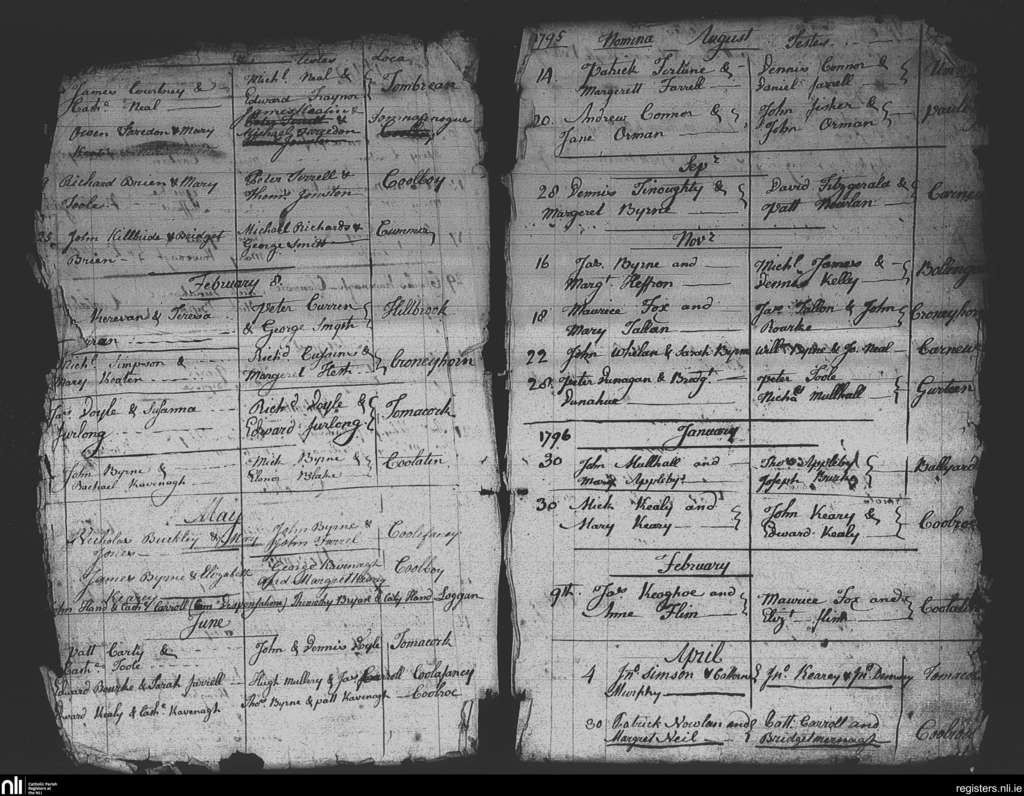 Testes Loca
James Courtney & Michl. Neal & Tombrean
Cathe. Neal Edward Traynor
Owen Faredon & Mary Tommassnogue
Michael Faredon
Richard Brien & Mary Peter Ferrell & Coolboy
Toole Thoms. Jonston
25 John Killbride & Bridget Michael Richards &
Brien George Smitt
February
Kerevan & Teresia Peter Curren Hillbrook
& George Smyth
Michl. Simpson & Richd. Cussins & Croneyhorn
Mary Keaten Margeret
Jas. Doyle & Susanna Richd. Doyle & Tomacork
Furlong Edward Furlong
John Byrne & Mick Byrne & Coolatin
Rachael Kavenagh Elonor Blake
May
Nicholas Buckley & Mary John Byrne & Coolefancy
Jones John Farrel
James Byrne & Elizabeth George Kavenagh Coolboy
Kearey and Margret Henry
John Hand & Cathe. Carroll (Cum Dispensatione) Timothy Bryan & Caty Hand Loggan
June
Patt Carty & John & Dennis Doyle Tomacork
Cathe. Toole
Edward Bourke & Sarah Farrell Hugh Mullery & Jas. Carroll Coolafancy
Edward Kealy & Cathe. Kavenagh Thos. Byrne & patt Kavenagh Coolroe
1795 Nomina August Testes
14 Patrick Fortune & Dennis Connor &
Margerett Farrell Daniel Farrell
20 Andrew Connor & John Fisker &
Jane Orman John Orman
Sepr.
28 Dennis Tinoughty & David Fitzgerald & Carnew
Margeret Byrne Patt Nowlan
Novr.
16 Jas. Byrne and Michl. James &
Margt. Heffron Dennis Kelly
18 Maurice Fox and Jas. Tallon & John Croneyhorn
Mary Tallan Rourke
22 John Whelan & Sarah Byrne Willm. Byrne & Js. Neal Carnew
28 Peter Dunagan & Bredgt. Peter Toole Gurtean
Dunahue Michas. Mullhall
1796 January
30 John Mullhall and Thos. Appleby
Mary Appleby Joseph Burke
30 Mick Kealy and John Keary & Coolroe
Mary Keary Edward Kealy
February
9th. Jas. Keaghoe and Maurice Fox and
Anne Flim Elizt. flim
April
4 Jno. Simson & Catherin Jno. Kearey & Jno.
Murphy
30 Patrick Nowlan and Catt. Carroll and
Margret Neil Bridget
nli Catholic Parish
Registers at
the NLI
registers.nli.ie